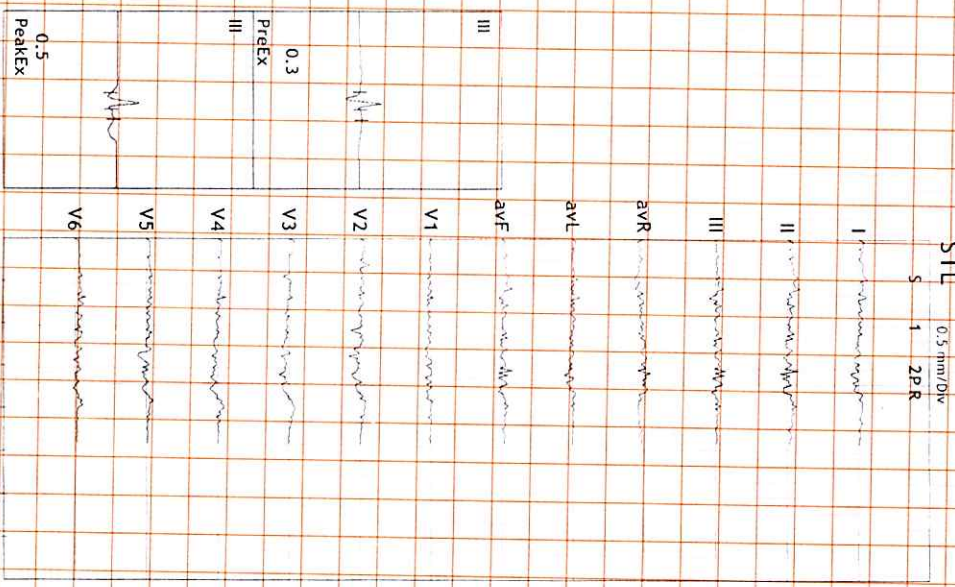 STL 0.5 mm/Div
S 1 2P.R
I
II
III
avR
avL
avF
V1
V2
V3
V4
V5
V6
III
0.3
PreEx
III
0.5
PeakEx